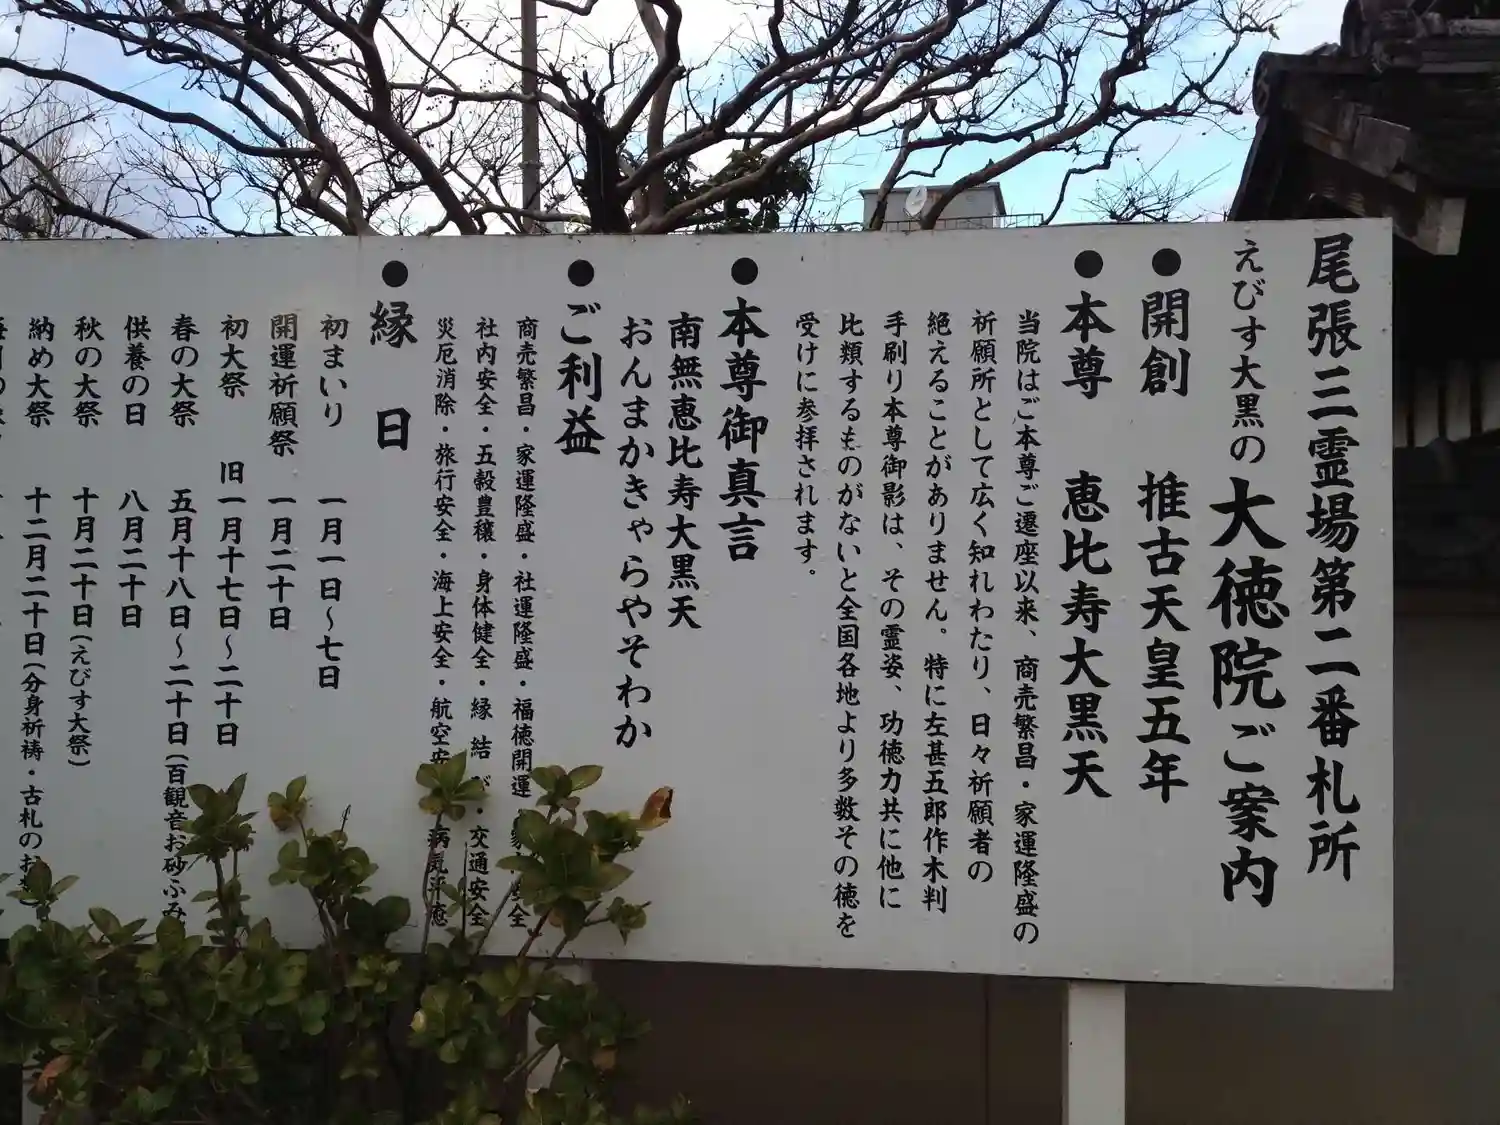 尾張三霊場第二番札所
えびす大黒の 大徳院ご案内
●開創 推古天皇五年
●本尊 恵比寿大黒天
当院はご本尊ご遷座以来、商売繁昌・家運隆盛の
祈願所として広く知れわたり、日々祈願者の
絶えることがありません。特に左甚五郎作木判
手刷り本尊御影は、その霊姿、功徳力共に他に
比類するものがないと全国各地より多数その徳を
受けに参拝されます。
●本尊御真言
南無恵比寿大黒天
おんまかきゃらやそわか
●ご利益
商売繁昌・家運隆盛・社運隆盛・福徳開運・家内安全
社内安全・五穀豊穣・身体健全・縁結び・交通安全
災厄消除・旅行安全・海上安全・航空安 病気平癒
●縁日
初まいり 一月一日〜七日
開運祈願祭 一月二十日
初大祭 旧一月十七日〜二十日
春の大祭 五月十八日〜二十日(百観音お砂ふみ
供養の日 八月二十日
秋の大祭 十月二十日(えびす大祭)
納め大祭 十二月二十日(分身祈祷・古札のお